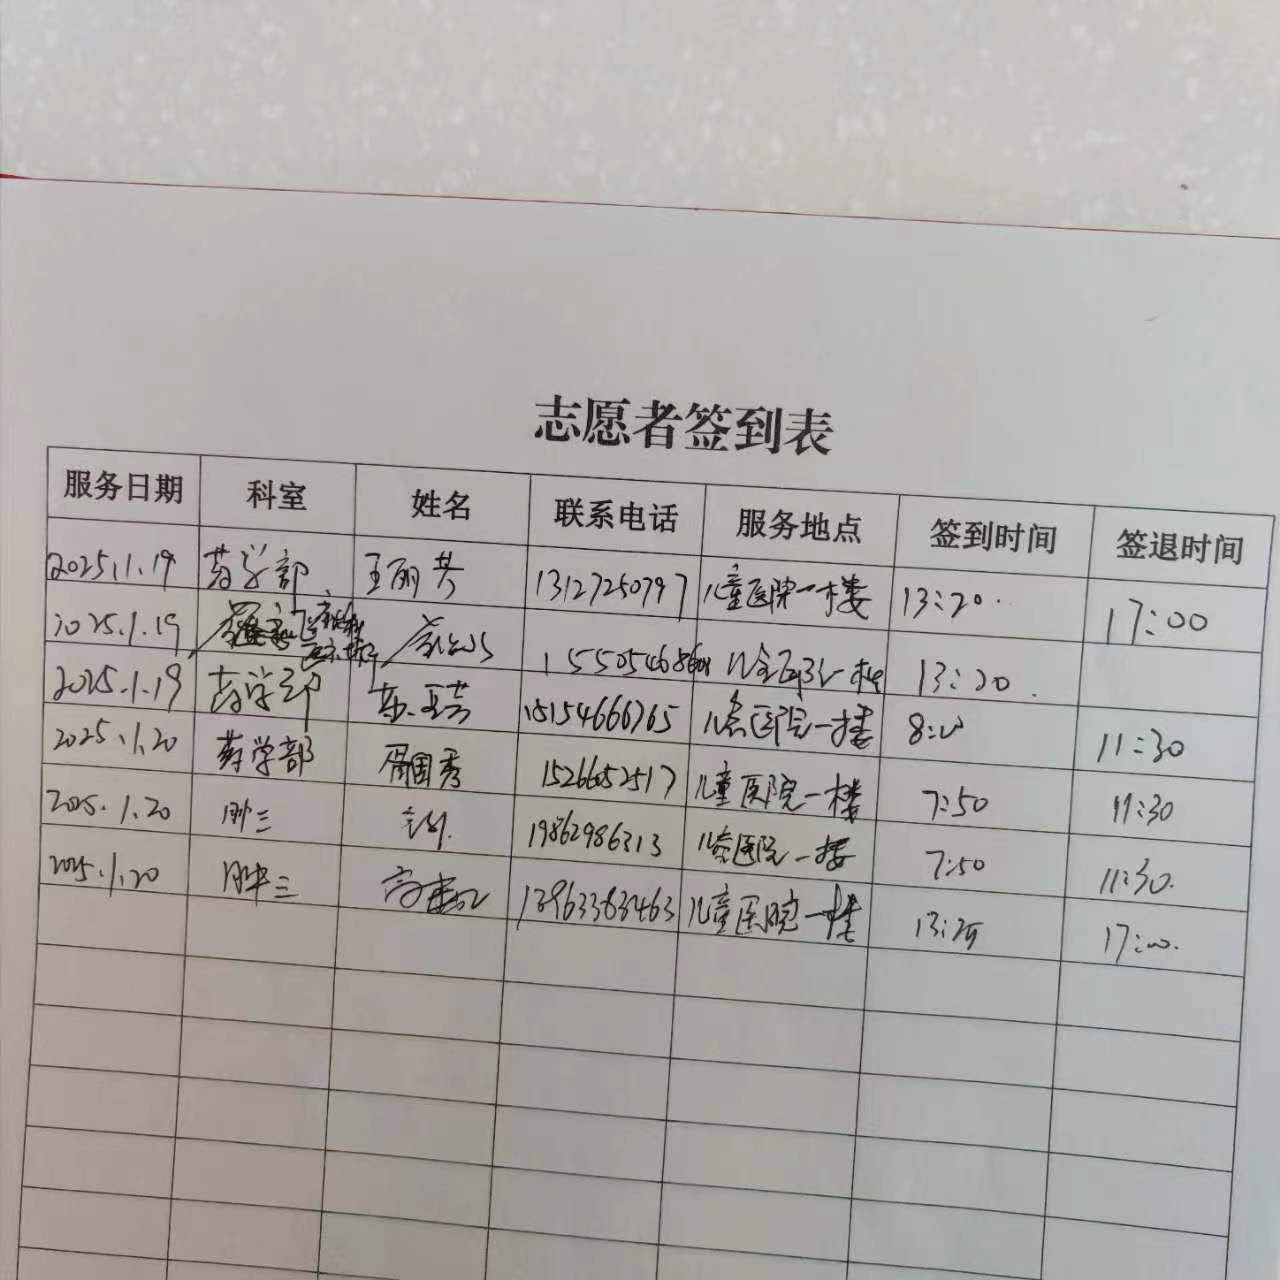 志愿者签到表
服务日期 科室 姓名 联系电话 服务地点 签到时间 签退时间
2025.1.19 药学部 王丽芳 13127250797 儿童医院一楼 13:20 17:00
2025.1.19 儿童医院一楼 13:20
2025.1.19 药学部 15154666765 儿童医院一楼 8:00 11:30
2025.1.20 药学部 胥国秀 15266052517 儿童医院一楼 7:50 11:30
2025.1.20 肿三 19862986313 儿童医院一楼 7:50 11:30
2025.1.20 肿三 13963363463 儿童医院一楼 17:00